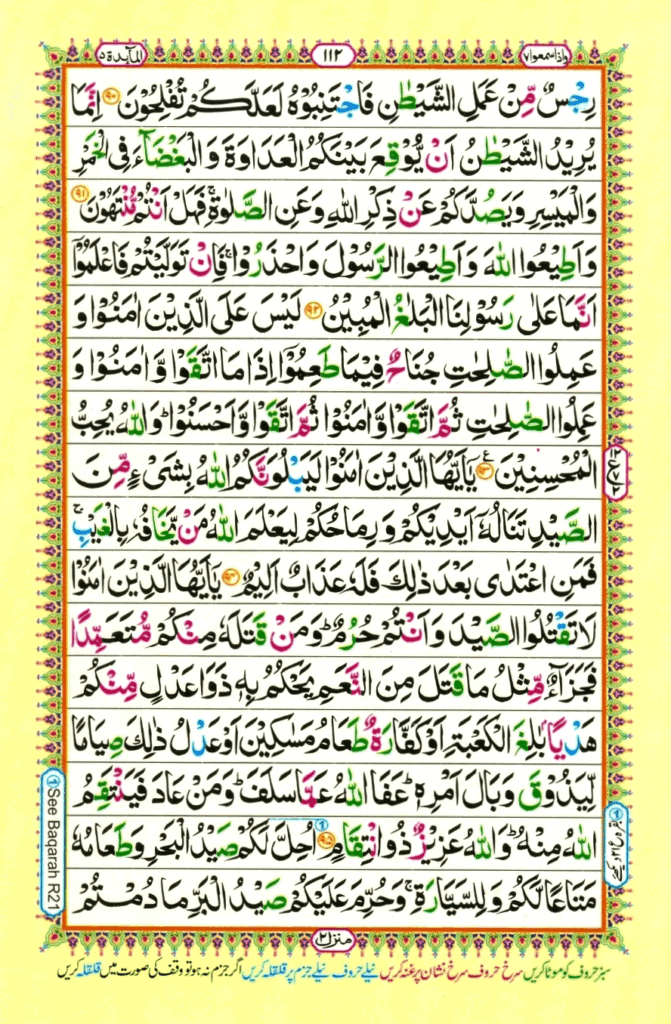 المآئدة ۵
۱۱۲
واذاسمعوا ۷
رِجْسٌ مِّنْ عَمَلِ الشَّيْطٰنِ فَاجْتَنِبُوْهُ لَعَلَّكُمْ تُفْلِحُوْنَ ۹۰ اِنَّمَا
يُرِيْدُ الشَّيْطٰنُ اَنْ يُّوْقِعَ بَيْنَكُمُ الْعَدَاوَةَ وَالْبَغْضَآءَ فِى الْخَمْرِ
وَالْمَيْسِرِ وَيَصُدَّكُمْ عَنْ ذِكْرِ اللهِ وَعَنِ الصَّلٰوةِ ۚ فَهَلْ اَنْتُمْ مُّنْتَهُوْنَ ۹۱
وَاَطِيْعُوا اللهَ وَاَطِيْعُوا الرَّسُوْلَ وَاحْذَرُوْا ۚ فَاِنْ تَوَلَّيْتُمْ فَاعْلَمُوْٓا
اَنَّمَا عَلٰى رَسُوْلِنَا الْبَلٰغُ الْمُبِيْنُ ۹۲ لَيْسَ عَلَى الَّذِيْنَ اٰمَنُوْا وَ
عَمِلُوا الصّٰلِحٰتِ جُنَاحٌ فِيْمَا طَعِمُوْٓا اِذَا مَا اتَّقَوْا وَّاٰمَنُوْا وَ
عَمِلُوا الصّٰلِحٰتِ ثُمَّ اتَّقَوْا وَّاٰمَنُوْا ثُمَّ اتَّقَوْا وَّاَحْسَنُوْا ؕ وَاللهُ يُحِبُّ
الْمُحْسِنِيْنَ ۹۳ يٰٓاَيُّهَا الَّذِيْنَ اٰمَنُوْا لَيَبْلُوَنَّكُمُ اللهُ بِشَىْءٍ مِّنَ
الصَّيْدِ تَنَالُهٗٓ اَيْدِيْكُمْ وَرِمَاحُكُمْ لِيَعْلَمَ اللهُ مَنْ يَّخَافُهٗ بِالْغَيْبِ ۚ
فَمَنِ اعْتَدٰى بَعْدَ ذٰلِكَ فَلَهٗ عَذَابٌ اَلِيْمٌ ۹۴ يٰٓاَيُّهَا الَّذِيْنَ اٰمَنُوْا
لَا تَقْتُلُوا الصَّيْدَ وَاَنْتُمْ حُرُمٌ ؕ وَمَنْ قَتَلَهٗ مِنْكُمْ مُّتَعَمِّدًا
فَجَزَآءٌ مِّثْلُ مَا قَتَلَ مِنَ النَّعَمِ يَحْكُمُ بِهٖ ذَوَا عَدْلٍ مِّنْكُمْ
هَدْيًاۢ بٰلِغَ الْكَعْبَةِ اَوْ كَفَّارَةٌ طَعَامُ مَسٰكِيْنَ اَوْ عَدْلُ ذٰلِكَ صِيَامًا
لِّيَذُوْقَ وَبَالَ اَمْرِهٖ ؕ عَفَا اللهُ عَمَّا سَلَفَ ؕ وَمَنْ عَادَ فَيَنْتَقِمُ
اللهُ مِنْهُ ؕ وَاللهُ عَزِيْزٌ ذُو انْتِقَامٍ ۹۵ اُحِلَّ لَكُمْ صَيْدُ الْبَحْرِ وَطَعَامُهٗ
مَتَاعًا لَّكُمْ وَلِلسَّيَّارَةِ ۚ وَحُرِّمَ عَلَيْكُمْ صَيْدُ الْبَرِّ مَا دُمْتُمْ
See Baqarah R21
منزل ۲
سبز حروف کو موٹا کریں سرخ حروف سرخ نشان پر غنہ کریں نیلے حروف نیلے جزم پر قلقلہ کریں اگر جزم نہ ہو تو وقف کی صورت میں قلقلہ کریں